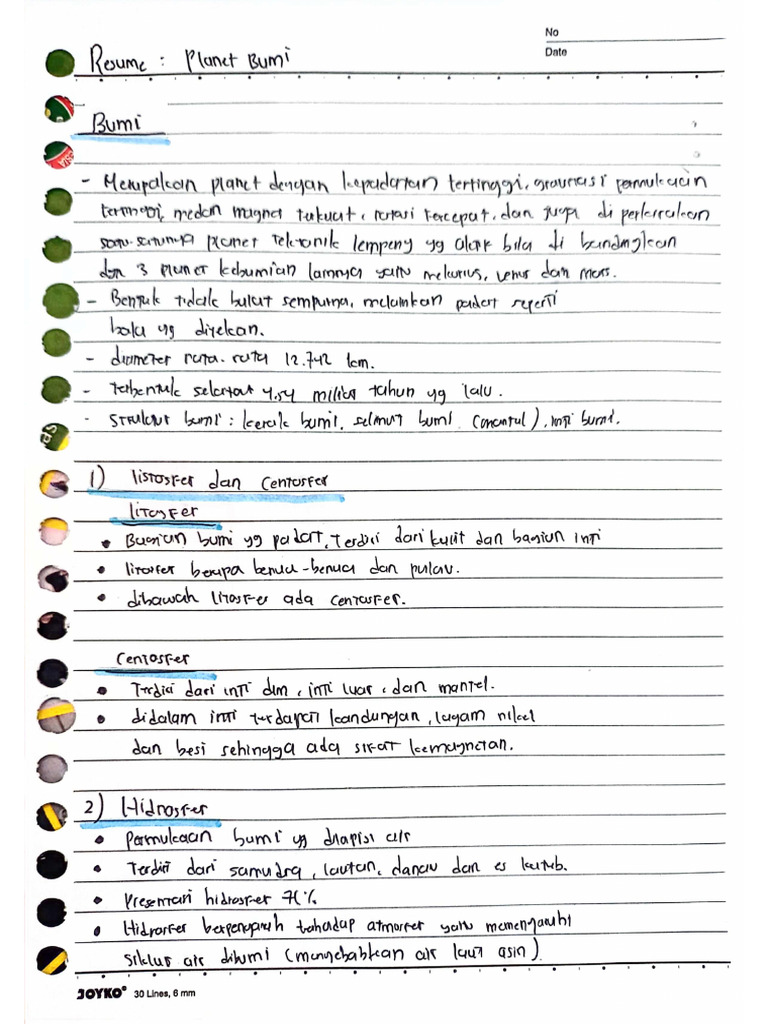 No
Date
Resume : Planet Bumi
Bumi
- Merupakan planet dengan kepadatan tertinggi, gravitasi permukaan
tertinggi, medan magna terkuat, rotasi tercepat, dan juga di perkirakan
satu-satunya planet tektonik lempeng yg aktif bila di bandingkan
dgn 3 planet kebumian lainnya yaitu merkurius, venus dan mars.
- Bentuk tidak bulat sempurna, melainkan padat seperti
bola yg ditekan.
- diameter rata-rata 12.742 km.
- terbentuk sekitar 4.54 miliar tahun yg lalu.
- Struktur bumi : kerak bumi, selimut bumi (mantul), inti bumi.
1) listosfer dan Centosfer
litosfer
• Bagian bumi yg padat, Terdiri dari kulit dan bagian inti
• litosfer berupa benua-benua dan pulau.
• dibawah litosfer ada centosfer.
Centosfer
• Terdiri dari inti dlm, inti luar, dan mantel.
• didalam inti terdapat kandungan, logam nikel
dan besi sehingga ada sifat kemagnetan.
2) Hidrosfer
• Permukaan bumi yg dilapisi air
• Terdiri dari samudra, lautan, danau dan es kutub.
• Presentasi hidrosfer 71%
• Hidrosfer berpengaruh tahadap atmosfer yaitu memengaruhi
siklus air dibumi (menyebabkan air laut asin).
JOYKO® 30 Lines, 6 mm